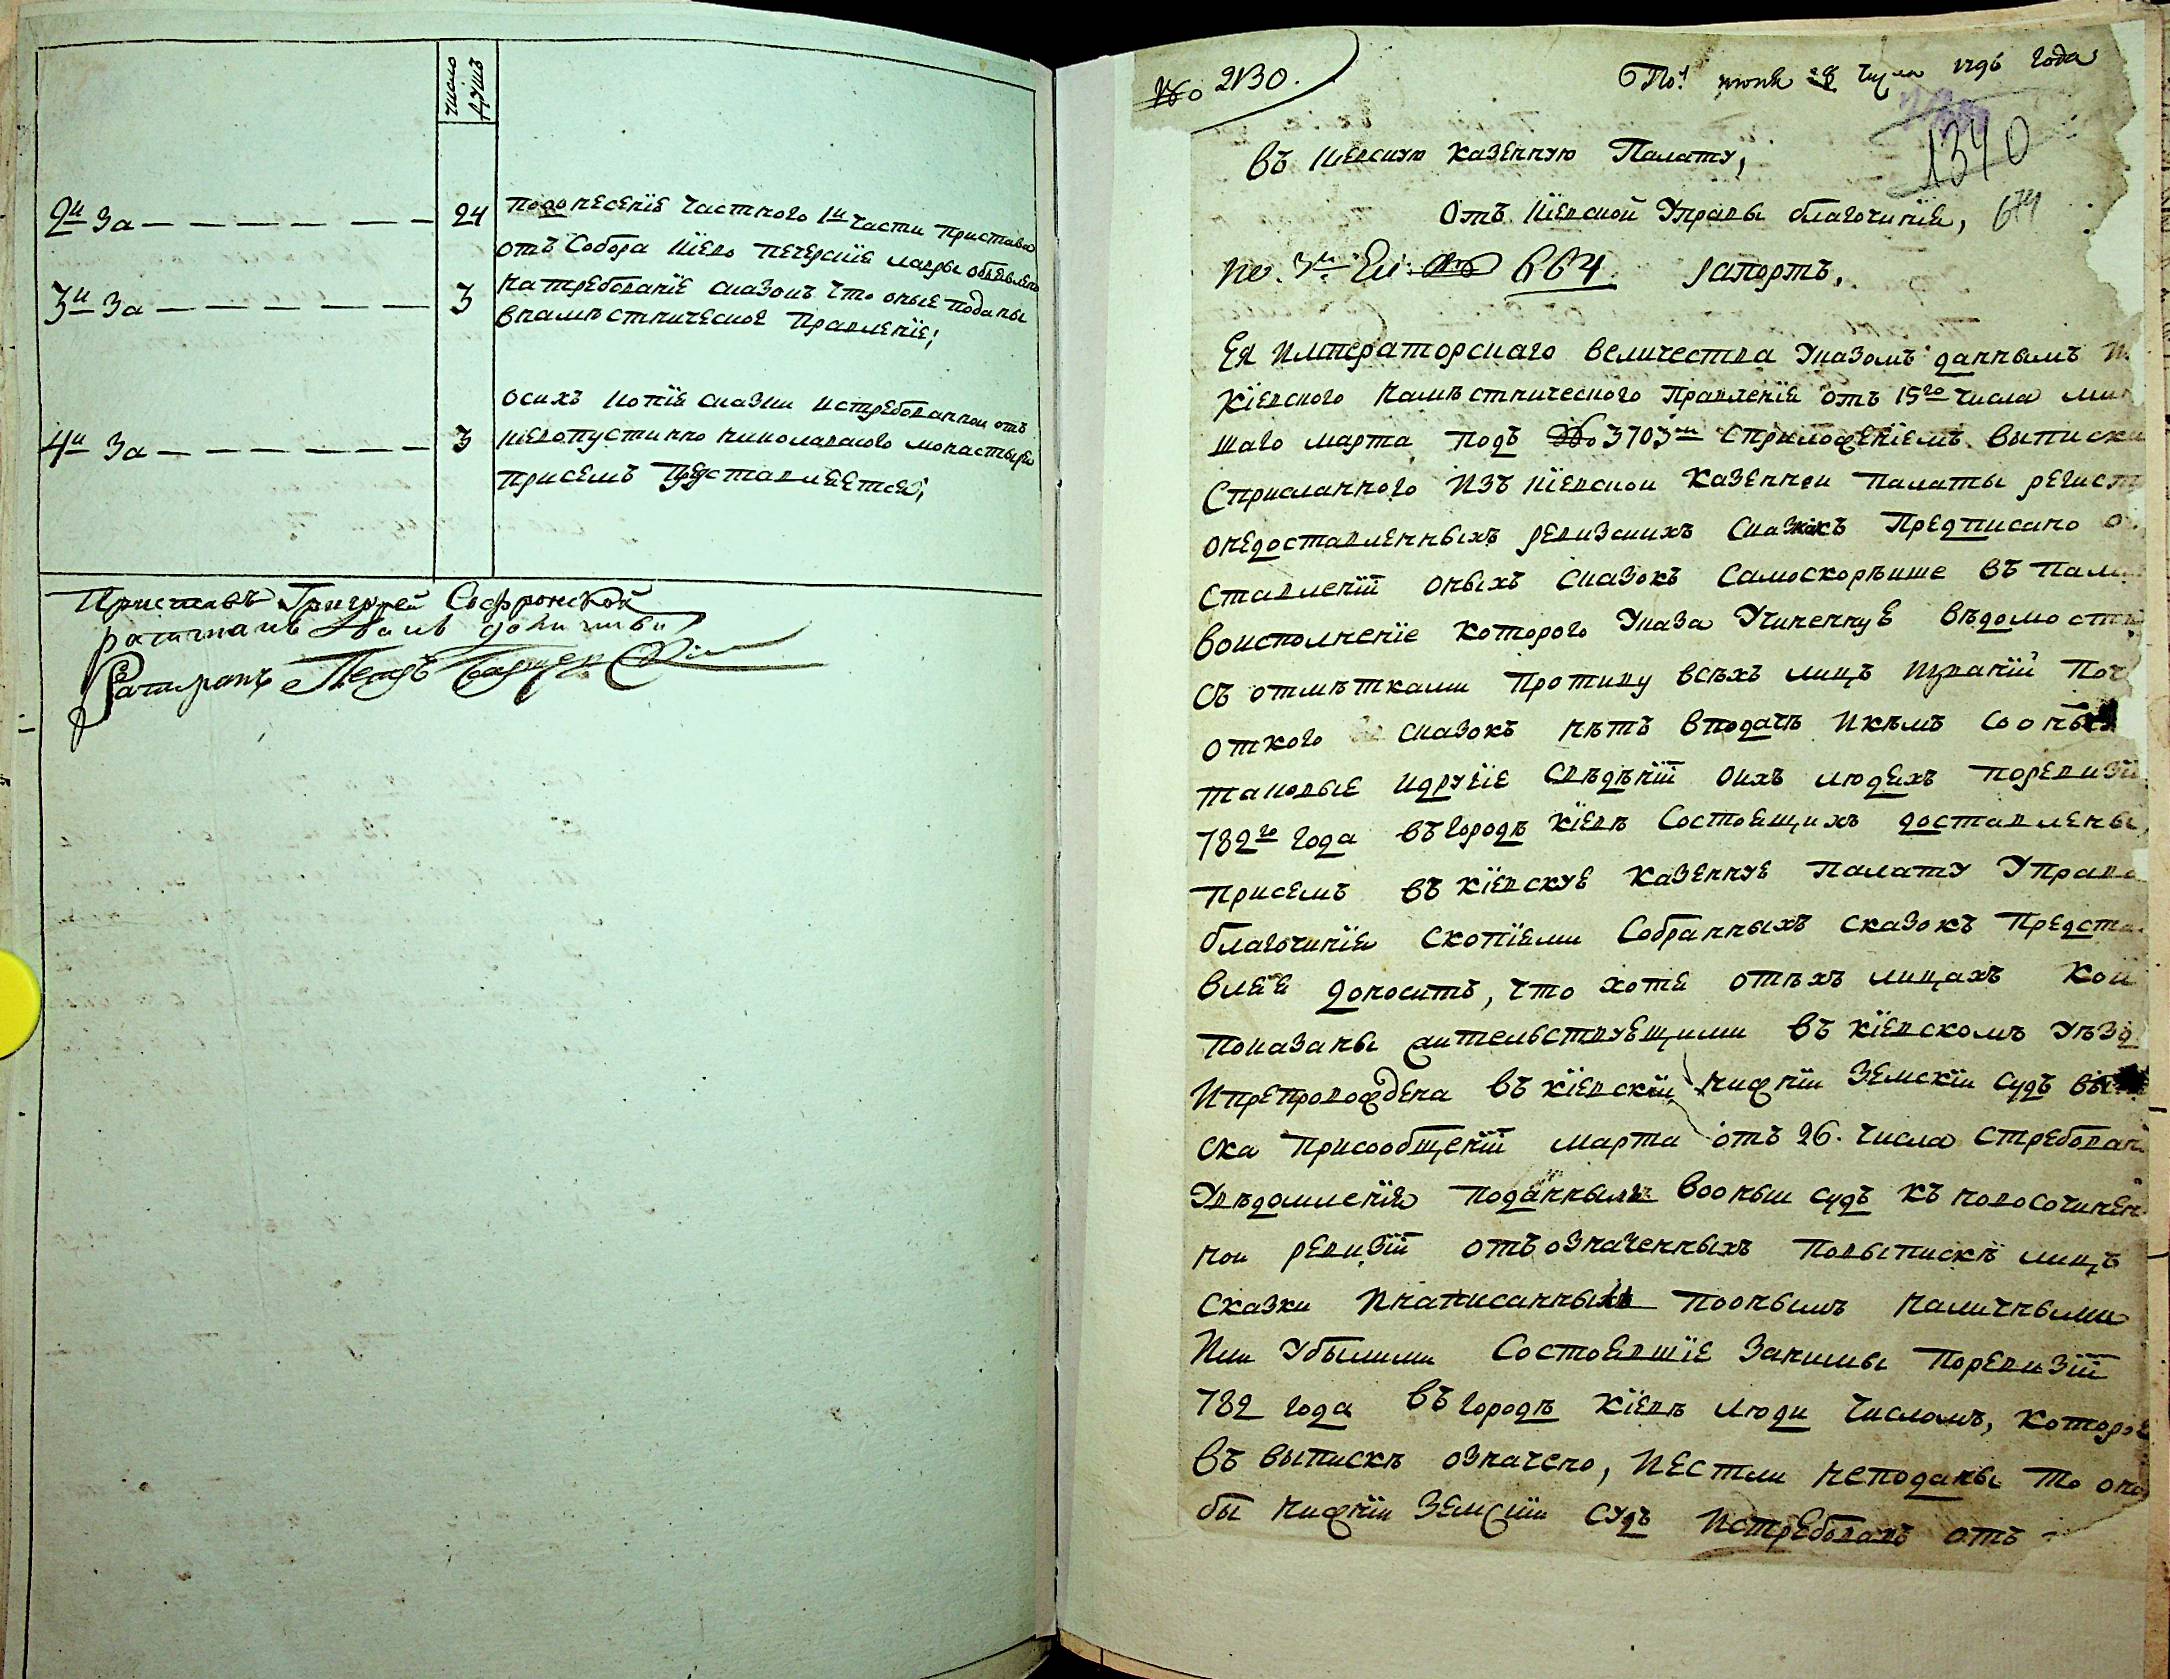 число душъ
2й За — — — — — — 24
3й За — — — — — — 3
4й За — — — — — — 3
подонесенїе частного 1й части пристава
отъ Собора Кїево печерскїе лавры объевлено
натребованїе сказокъ что оные поданы
внаместническое Правленїе;
осихъ копїе сказки истребованной отъ
Кїевопустынно николаевского монастыре
присемъ представлѣется;
Приставъ Григорей Софроновской
Ратманъ
Ратманъ Петръ
№ 2130.
По: июня 28 числа 1796 года
1340
674
въ Кїевскую казенную Палату,
Отъ Кїевской Управы благочинїя,
по 3й Ек: № 664. рапортъ,
Ея Императорскаго величества Указомъ даннымъ И
Кїевского намѣстнического Правленїя отъ 15го числа мин
шаго марта подъ № 3703м Сприложенїемъ выписки
Сприсланного Изъ Кїевской казенной палаты регист
онедоставленныхъ ревизскихъ Сказокъ Предписано о
ставленїи оныхъ сказокъ Самоскорѣише въ пал
воисполненїе которого Указа Учиненную вѣдомость
Съ отмѣтками противу всѣхъ лицъ
откого сказокъ нѣтъ вподачѣ Икѣмъ Соны
таковые идругїе свѣдѣнїи оихъ людехъ поревизїи
782го года въ городѣ кїевѣ Состоящихъ доставлены,
присемъ въ кїевскую казенную палату Управа
благочинїя скопїеми Собранныхъ сказокъ предста
влѣя доноситъ, что хотя отѣхъ лицахъ кои
показаны жительствующими въ кїевскомъ уѣзд
Ипрепровождена въ кїевскїй нижнїй земскїй судъ вы
ска присообщенїи марта отъ 26. числа стребован
Увѣдомленїя поданныль вооный судъ къ новосочинен
ной ревизїи отъозначенныхъ повыпискѣ лицъ
сказки Инаписанныль пооным наличными
Или Убылыми Состоявшїе заними поревизїи
782 года въ городѣ кїевѣ люди числомъ, которое
въ выпискѣ означено, Иестли неподаны то он
бы нижнїй земскїй судъ Истребовавъ отъ -